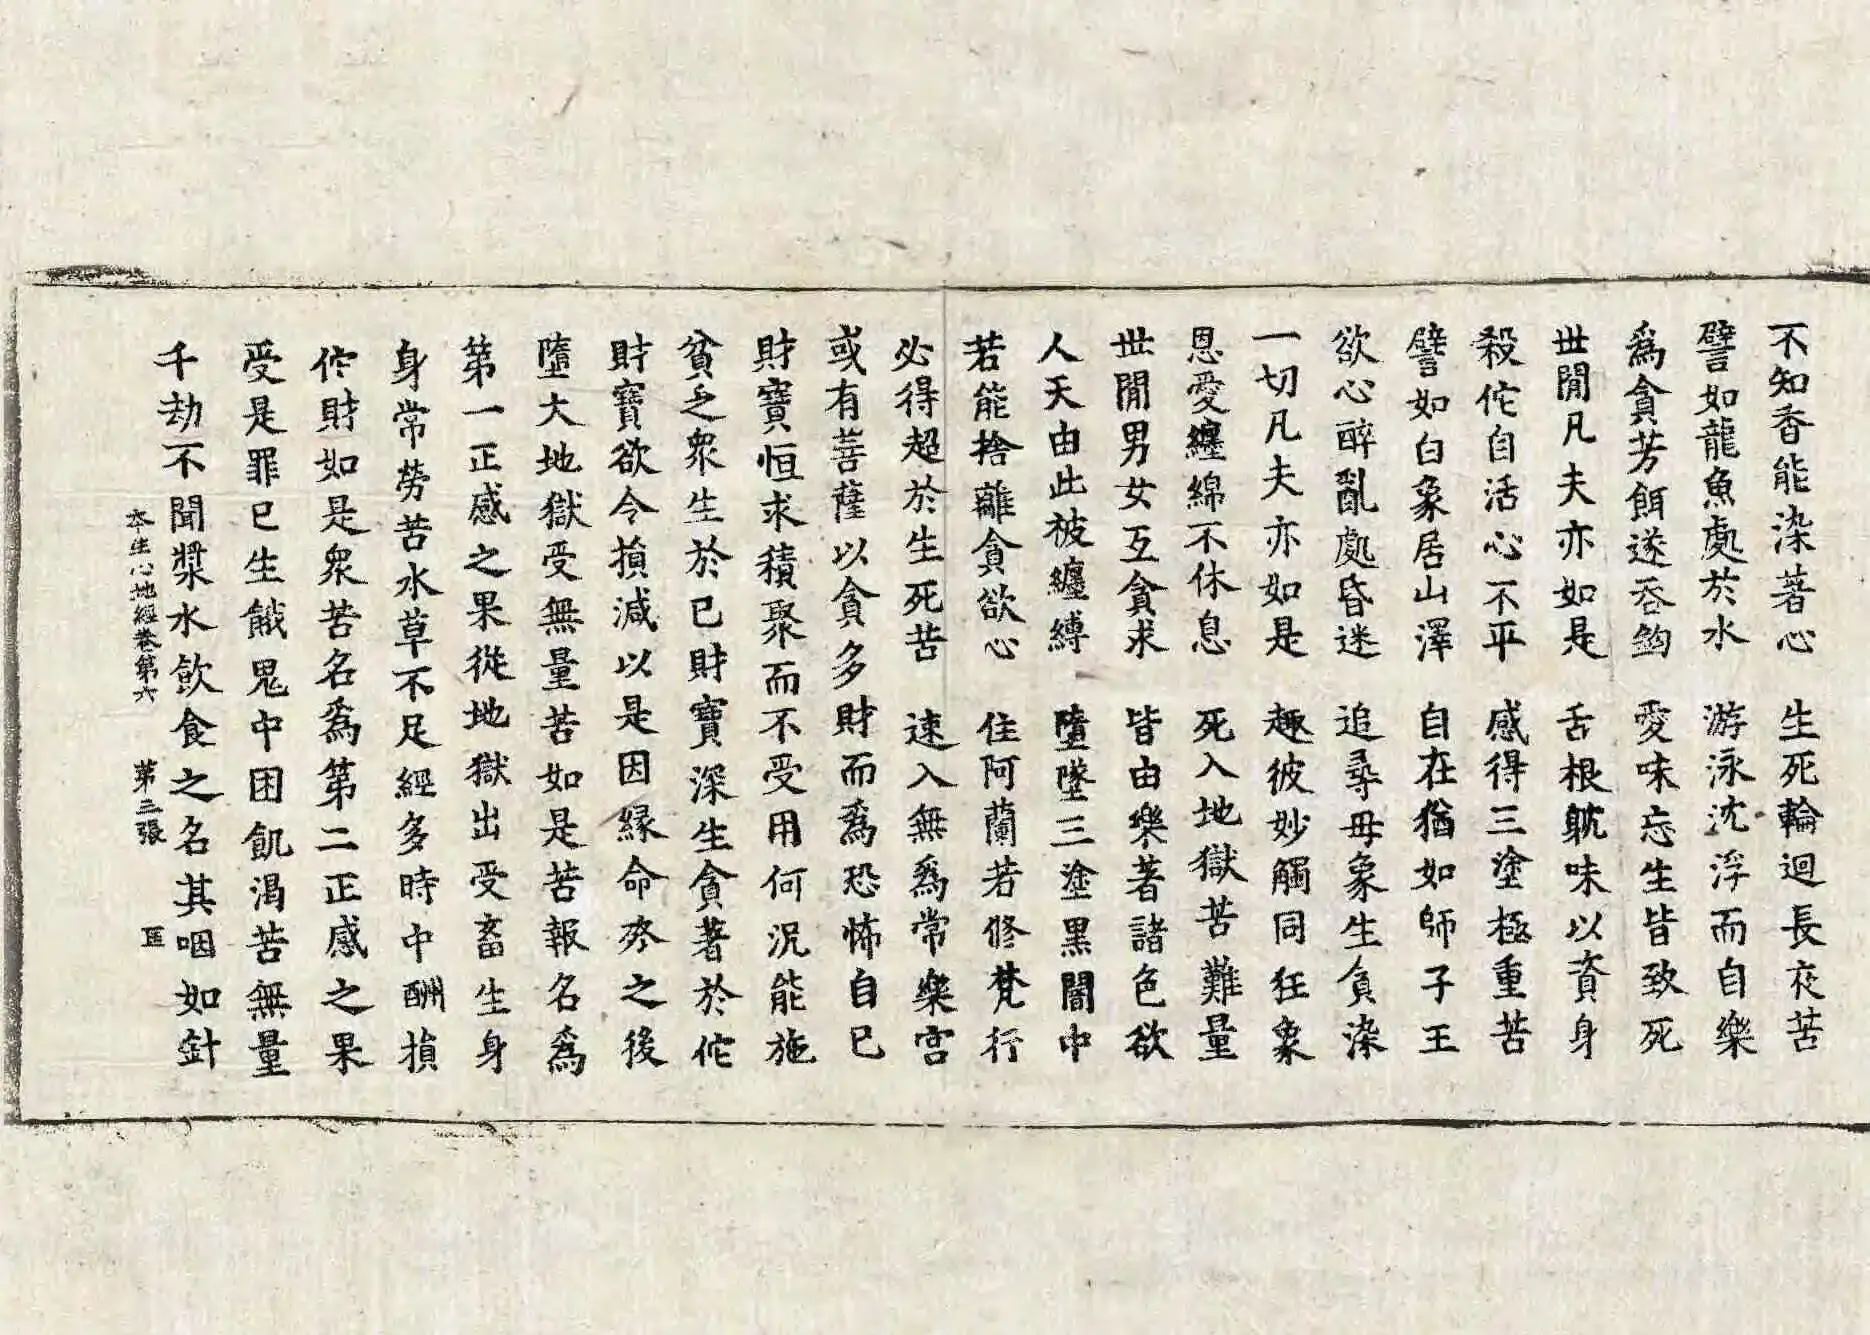 不知香能染著心　生死輪迴長夜苦
譬如龍魚處於水　游泳沈浮而自樂
爲貪芳餌遂吞鉤　愛味忘生皆致死
世閒凡夫亦如是　舌根躭味以資身
殺佗自活心不平　感得三塗極重苦
譬如白象居山澤　自在猶如師子王
欲心醉亂處昏迷　追尋母象生貪染
一切凡夫亦如是　趣彼妙觸同狂象
恩愛纏綿不休息　死入地獄苦難量
世閒男女互貪求　皆由樂著諸色欲
人天由此被纏縛　墮墜三塗黑闇中
若能捨離貪欲心　住阿蘭若修梵行
必得超於生死苦　速入無爲常樂宮
或有菩薩以貪多財而爲恐怖自已
財寶恒求積聚而不受用何況能施
貧乏衆生於已財寶深生貪著於佗
財寶欲令損減以是因緣命終之後
墮大地獄受無量苦如是苦報名爲
第一正感之果從地獄出受畜生身
身常勞苦水草不足經多時中酬損
佗財如是衆苦名爲第二正感之果
受是罪已生餓鬼中困飢渴苦無量
千劫不聞漿水飲食之名其咽如針
本生心地經卷第六　第三張